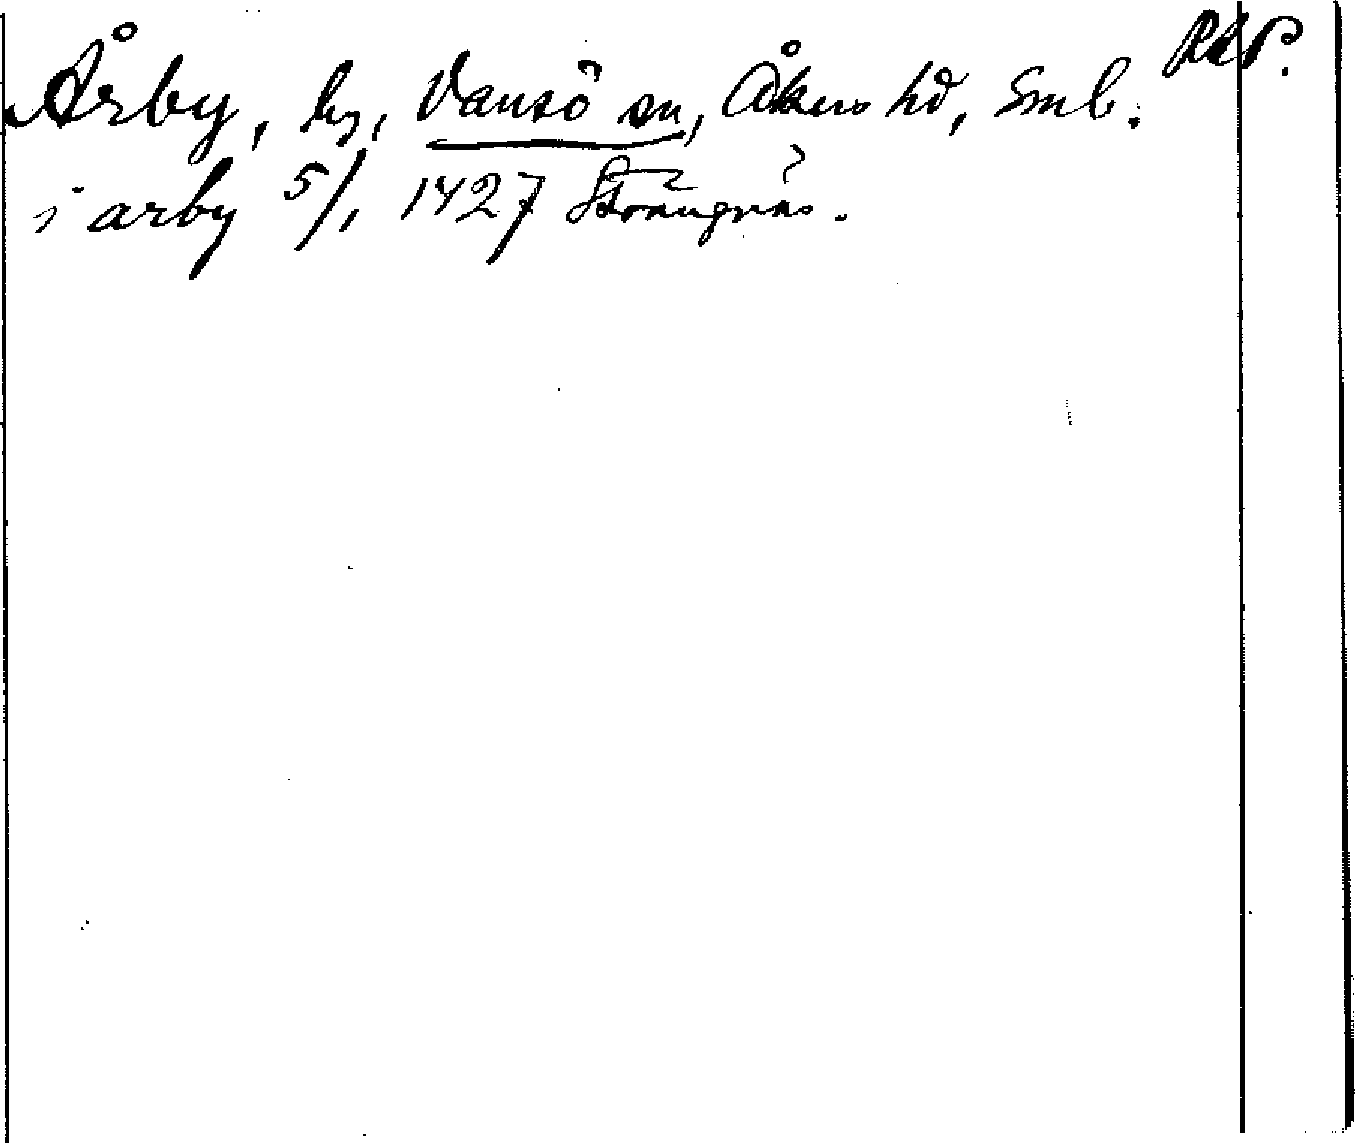 Årby, by, Vansö sn, Åkers hd, Smb. RAP.
i arby 5/1 1427 Strängnäs.